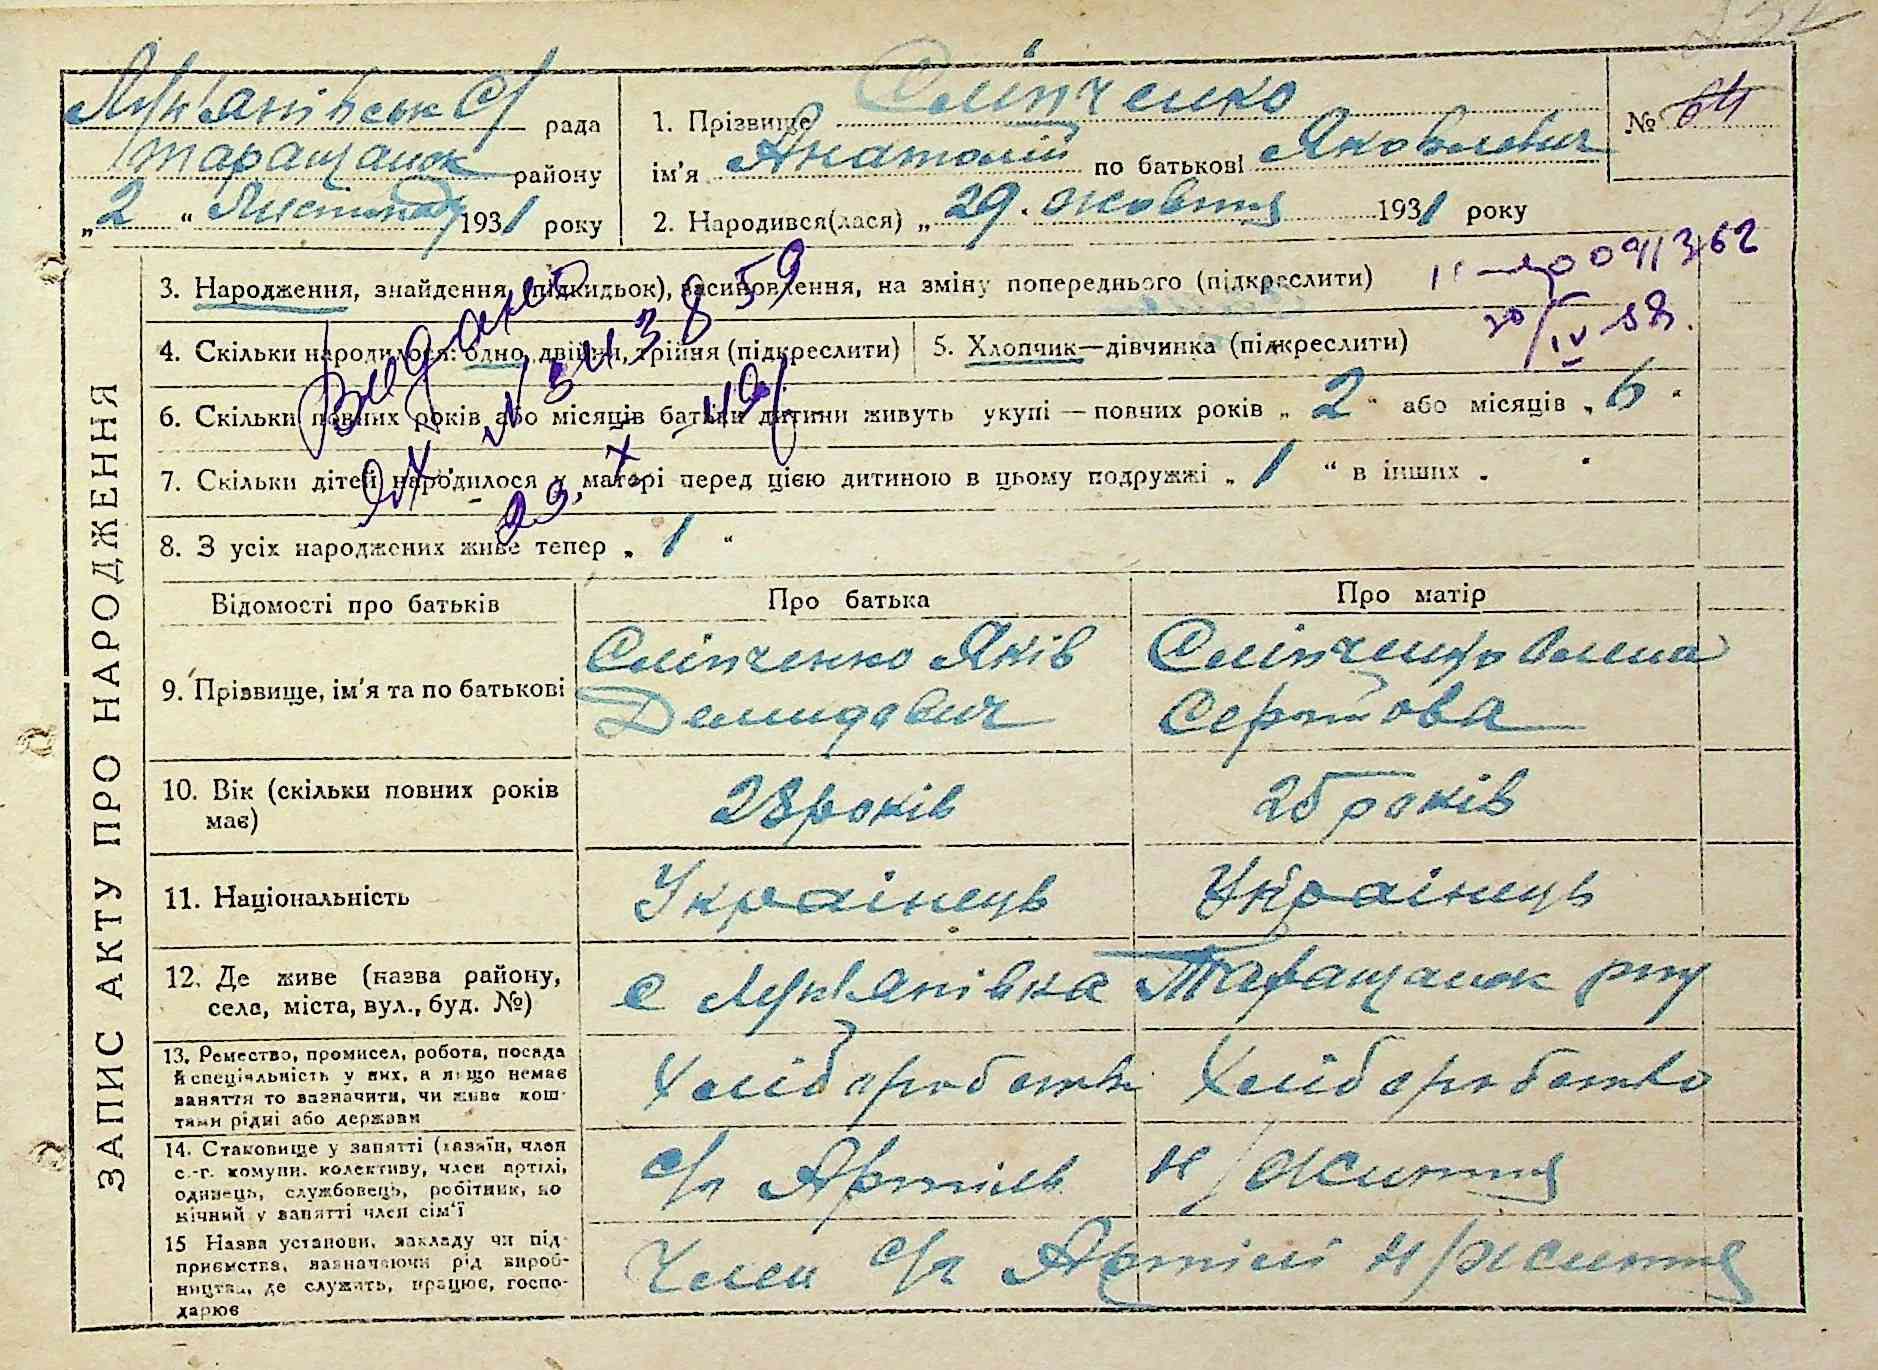 Лук'янівськ с/
рада
Таращанск району
„2“ Листопаду 1931 року
1. Прізвище Сліпченко
ім'я Анатолій по батькові Яковлевич
№ 64
2. Народився(лася) „29. жовтня 1931 року
ЗАПИС АКТУ ПРО НАРОДЖЕННЯ
3. Народження, знайдення (підкидьок), всиновлення, на зміну попереднього (підкреслити)
4. Скільки народилося: одно, двійня, трійня (підкреслити)
5. Хлопчик—дівчинка (підкреслити)
20/IV-58.
6. Скільки повних років або місяців батьки дитини живуть укупі — повних років „2“ або місяців „6“
7. Скільки дітей народилося у матері перед цією дитиною в цьому подружжі „1“ в інших „
8. З усіх народжених живе тепер „1“
Відомості про батьків
Про батька
Про матір
9. Прізвище, ім'я та по батькові
Сліпченко Яків
Демидович
Сліпченко Олена
10. Вік (скільки повних років
має)
28 років
25 років
11. Національність
Українець
Українець
12. Де живе (назва району,
села, міста, вул., буд. №)
с Лук'янівка Таращанск рну
13. Ремество, промисел, робота, посада
й спеціяльність у них, а якщо немає
заняття то зазначити, чи живе кош-
тами рідні або держави
Хлібаробство
Хлібаробство
14. Становище у занятті (хазяїн, член
с.-г. комуни, колективу, член артілі,
одинець, службовець, робітник, по
мічний у занятті член сім'ї
с/г Артіль
н/життя
15 Назва установи, закладу чи під-
приємства, зазначаючи рід вироб-
ництва, де служить, працює, госпо-
дарює
Член с/г Артілі н/життя